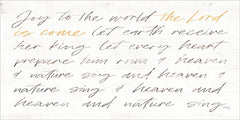 Joy to the world the Lord
is come let earth receive
her king let every heart
prepare him room & heaven
& nature sing and heaven &
nature sing & heaven and
heaven and nature sing